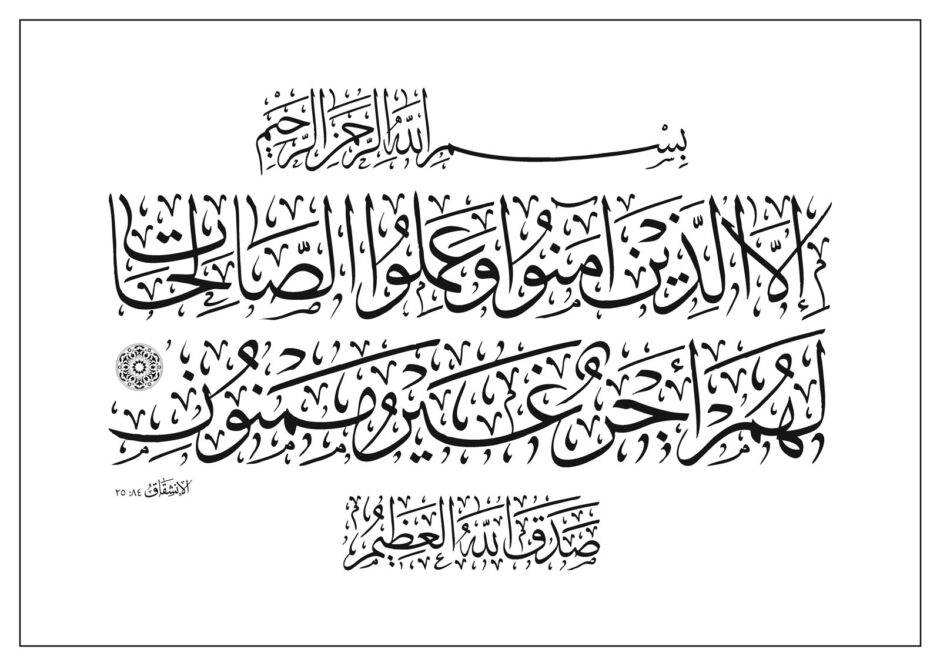 بِسْمِ اللهِ الرَّحْمٰنِ الرَّحِيْمِ
إِلَّا الَّذِيْنَ اٰمَنُوا وَعَمِلُوا الصَّالِحَاتِ
لَهُمْ أَجْرٌ غَيْرُ مَمْنُوْنٍ
الإنشقاق ٨٤: ٢٥
صَدَقَ اللهُ الْعَظِيْمُ